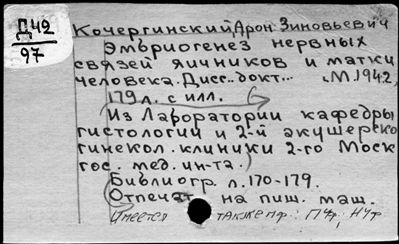 Д42
97
Кочергинский, Арон Зиновьевич
Эмбриогенез нервных
связей яичников и матки
человека. Дисс.. докт... М. 1942,
179 л. с илл.
(Из Лаборатории кафедры
гистологии и 2-й акушерско
гинекол. клиники 2-го Моск
гос. мед. ин-та.)
Библиогр. л. 170-179.
Отпечат на пиш. маш.
Имеется также пф: ПЧф; НЧф